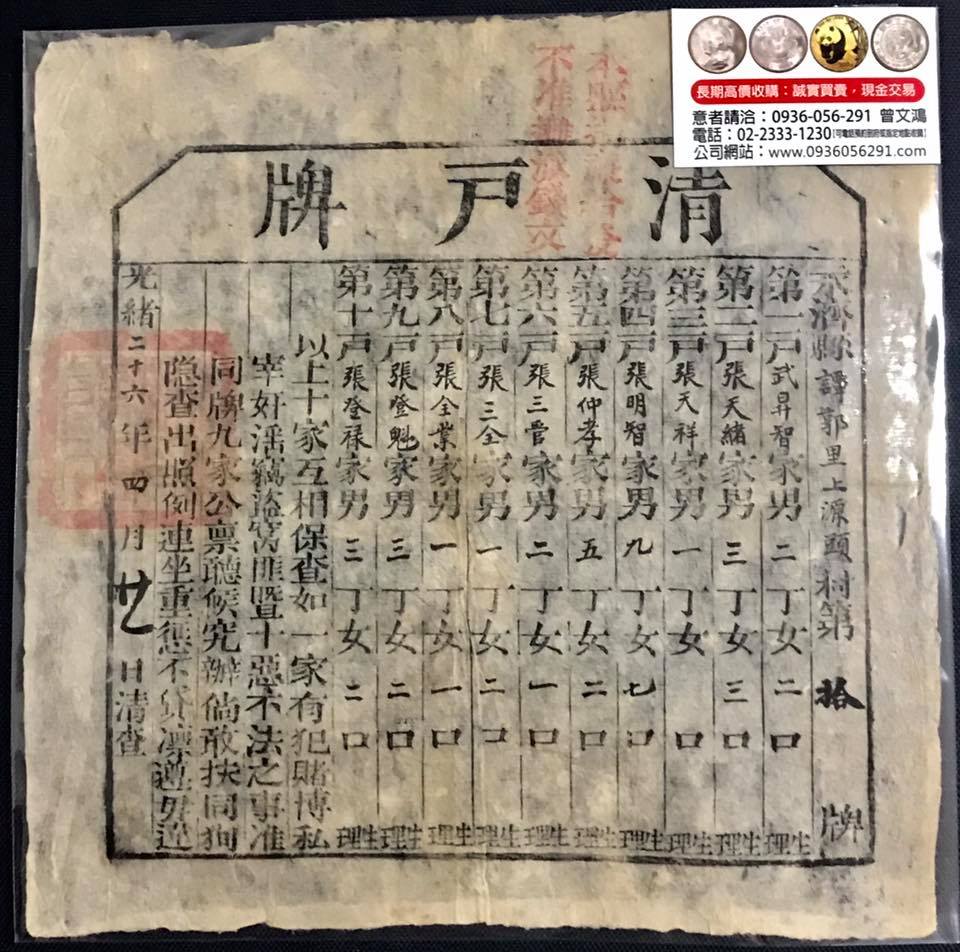 長期高價收購：誠實買賣，現金交易
意者請洽：0936-056-291 曾文鴻
電話：02-2333-1230
公司網站：www.0936056291.com
不准攤派錢文
清戶牌
縣譚郭里上源頭村第拾牌
第一戶武昇智家男二丁女二口生理
第二戶張天緒家男三丁女三口生理
第三戶張天祥家男一丁女口生理
第四戶張明智家男九丁女七口生理
第五戶張仲孝家男五丁女二口生理
第六戶張三晉家男二丁女一口生理
第七戶張三全家男一丁女二口生理
第八戶張全業家男一丁女一口生理
第九戶張登魁家男三丁女二口生理
第十戶張登禄家男三丁女二口生理
以上十家互相保查如一家有犯賭博私
宰奸淫竊盜窩匪暨十惡不法之事准
同牌九家公禀聽候究辦倘敢扶同狥
隐查出照例連坐重懲不貸凛遵毋違
光緒二十六年四月廿日清查